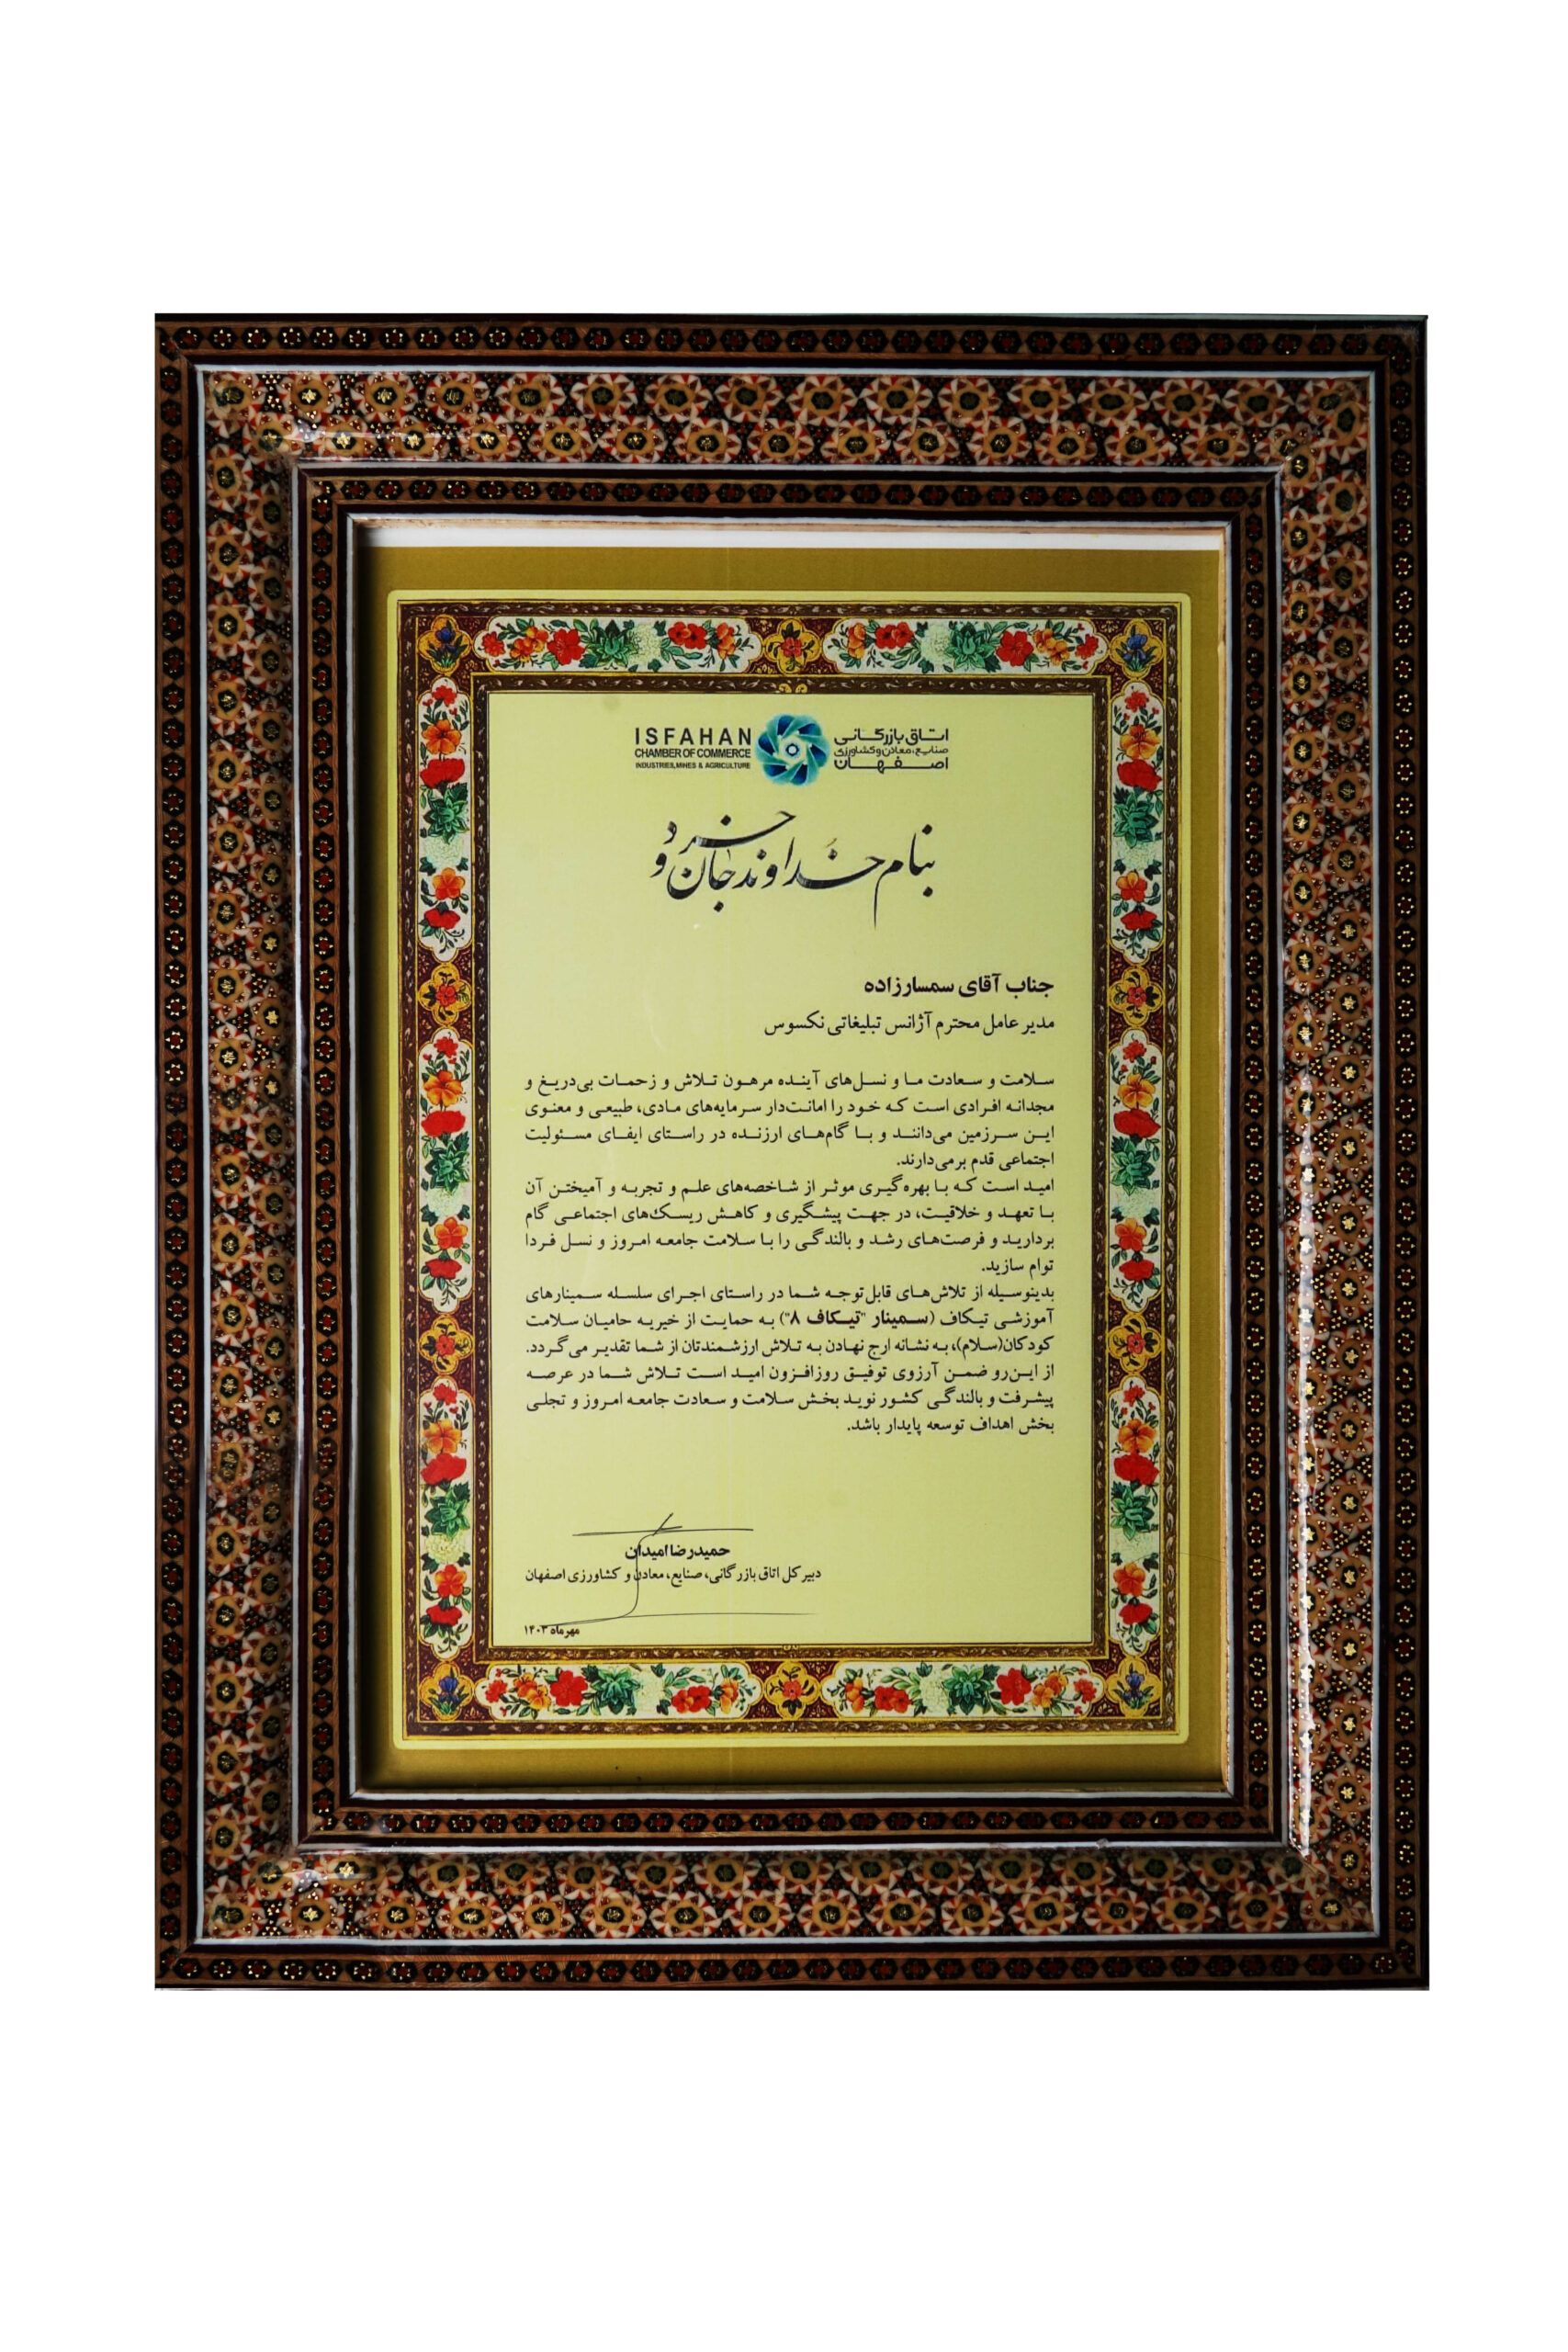 ISFAHAN
CHAMBER OF COMMERCE
INDUSTRIES, MINES & AGRICULTURE
اتاق بازرگانی
صنایع، معادن و کشاورزی
اصفهان
بنام خداوند جان و خرد
جناب آقای سمسارزاده
مدیر عامل محترم آژانس تبلیغاتی نکسوس
سلامت و سعادت ما و نسل‌های آینده مرهون تلاش و زحمات بی‌دریغ و
مجدانه افرادی است که خود را امانت‌دار سرمایه‌های مادی، طبیعی و معنوی
این سرزمین می‌دانند و با گام‌های ارزنده در راستای ایفای مسئولیت
اجتماعی قدم برمی‌دارند.
امید است که با بهره‌گیری موثر از شاخصه‌های علم و تجربه و آمیختن آن
با تعهد و خلاقیت، در جهت پیشگیری و کاهش ریسک‌های اجتماعی گام
بردارید و فرصت‌های رشد و بالندگی را با سلامت جامعه امروز و نسل فردا
توام سازید.
بدینوسیله از تلاش‌های قابل‌توجه شما در راستای اجرای سلسله سمینارهای
آموزشی تیکاف (سمینار "تیکاف ۸") به حمایت از خیریه حامیان سلامت
کودکان(سلام)، به نشانه ارج نهادن به تلاش ارزشمندتان از شما تقدیر می‌گردد.
از این‌رو ضمن آرزوی توفیق روزافزون امید است تلاش شما در عرصه
پیشرفت و بالندگی کشور نوید بخش سلامت و سعادت جامعه امروز و تجلی
بخش اهداف توسعه پایدار باشد.
حمیدرضا امیدان
دبیر کل اتاق بازرگانی، صنایع، معادن و کشاورزی اصفهان
مهرماه ۱۴۰۳